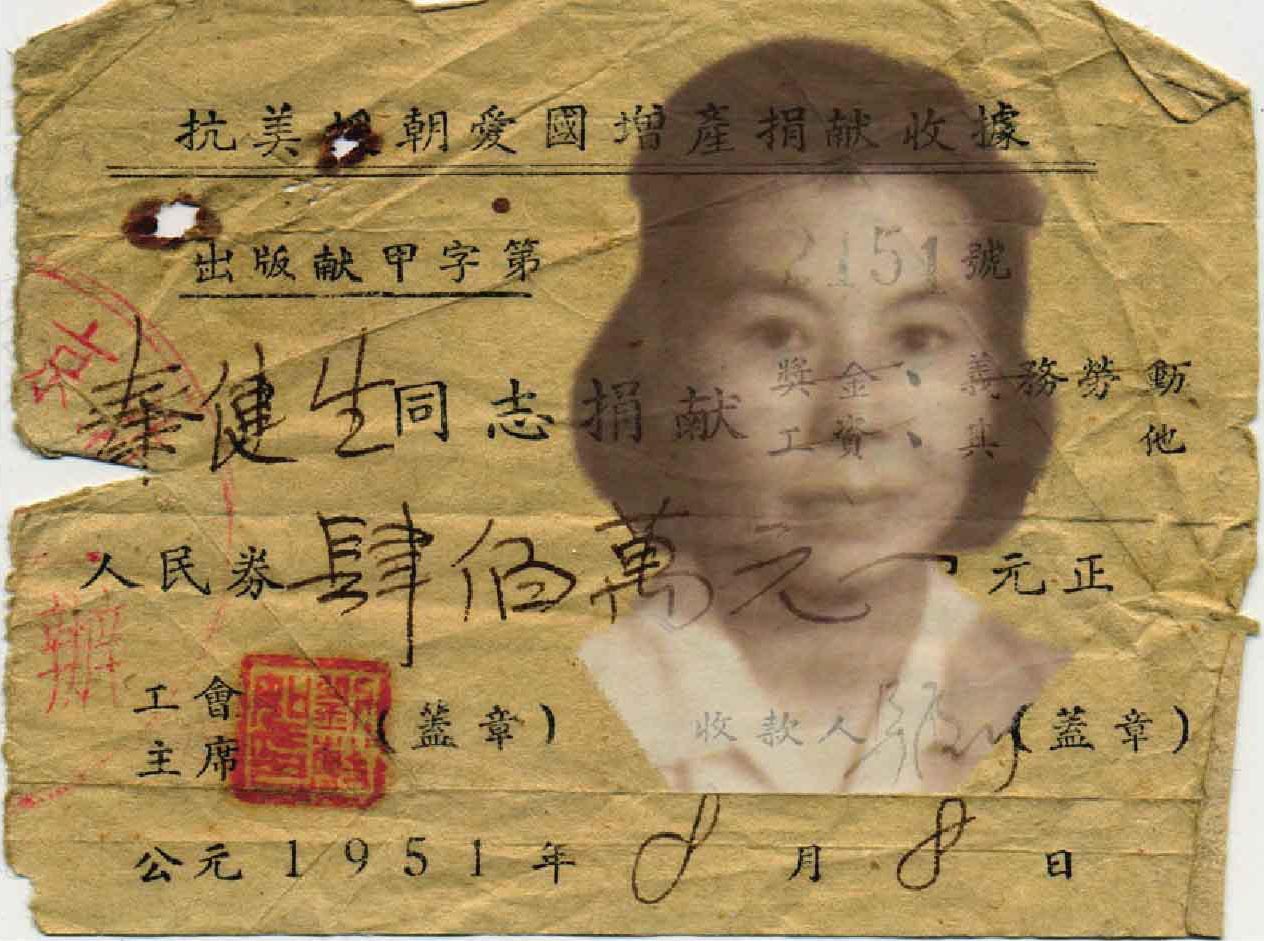 抗美援朝愛國增產捐献收據
出版献甲字第2151號
秦健生同志捐献獎金、義務勞動
工資、其他
人民券肆佰萬元元正
工會主席(蓋章) 收款人(蓋章)
公元1951年8月8日